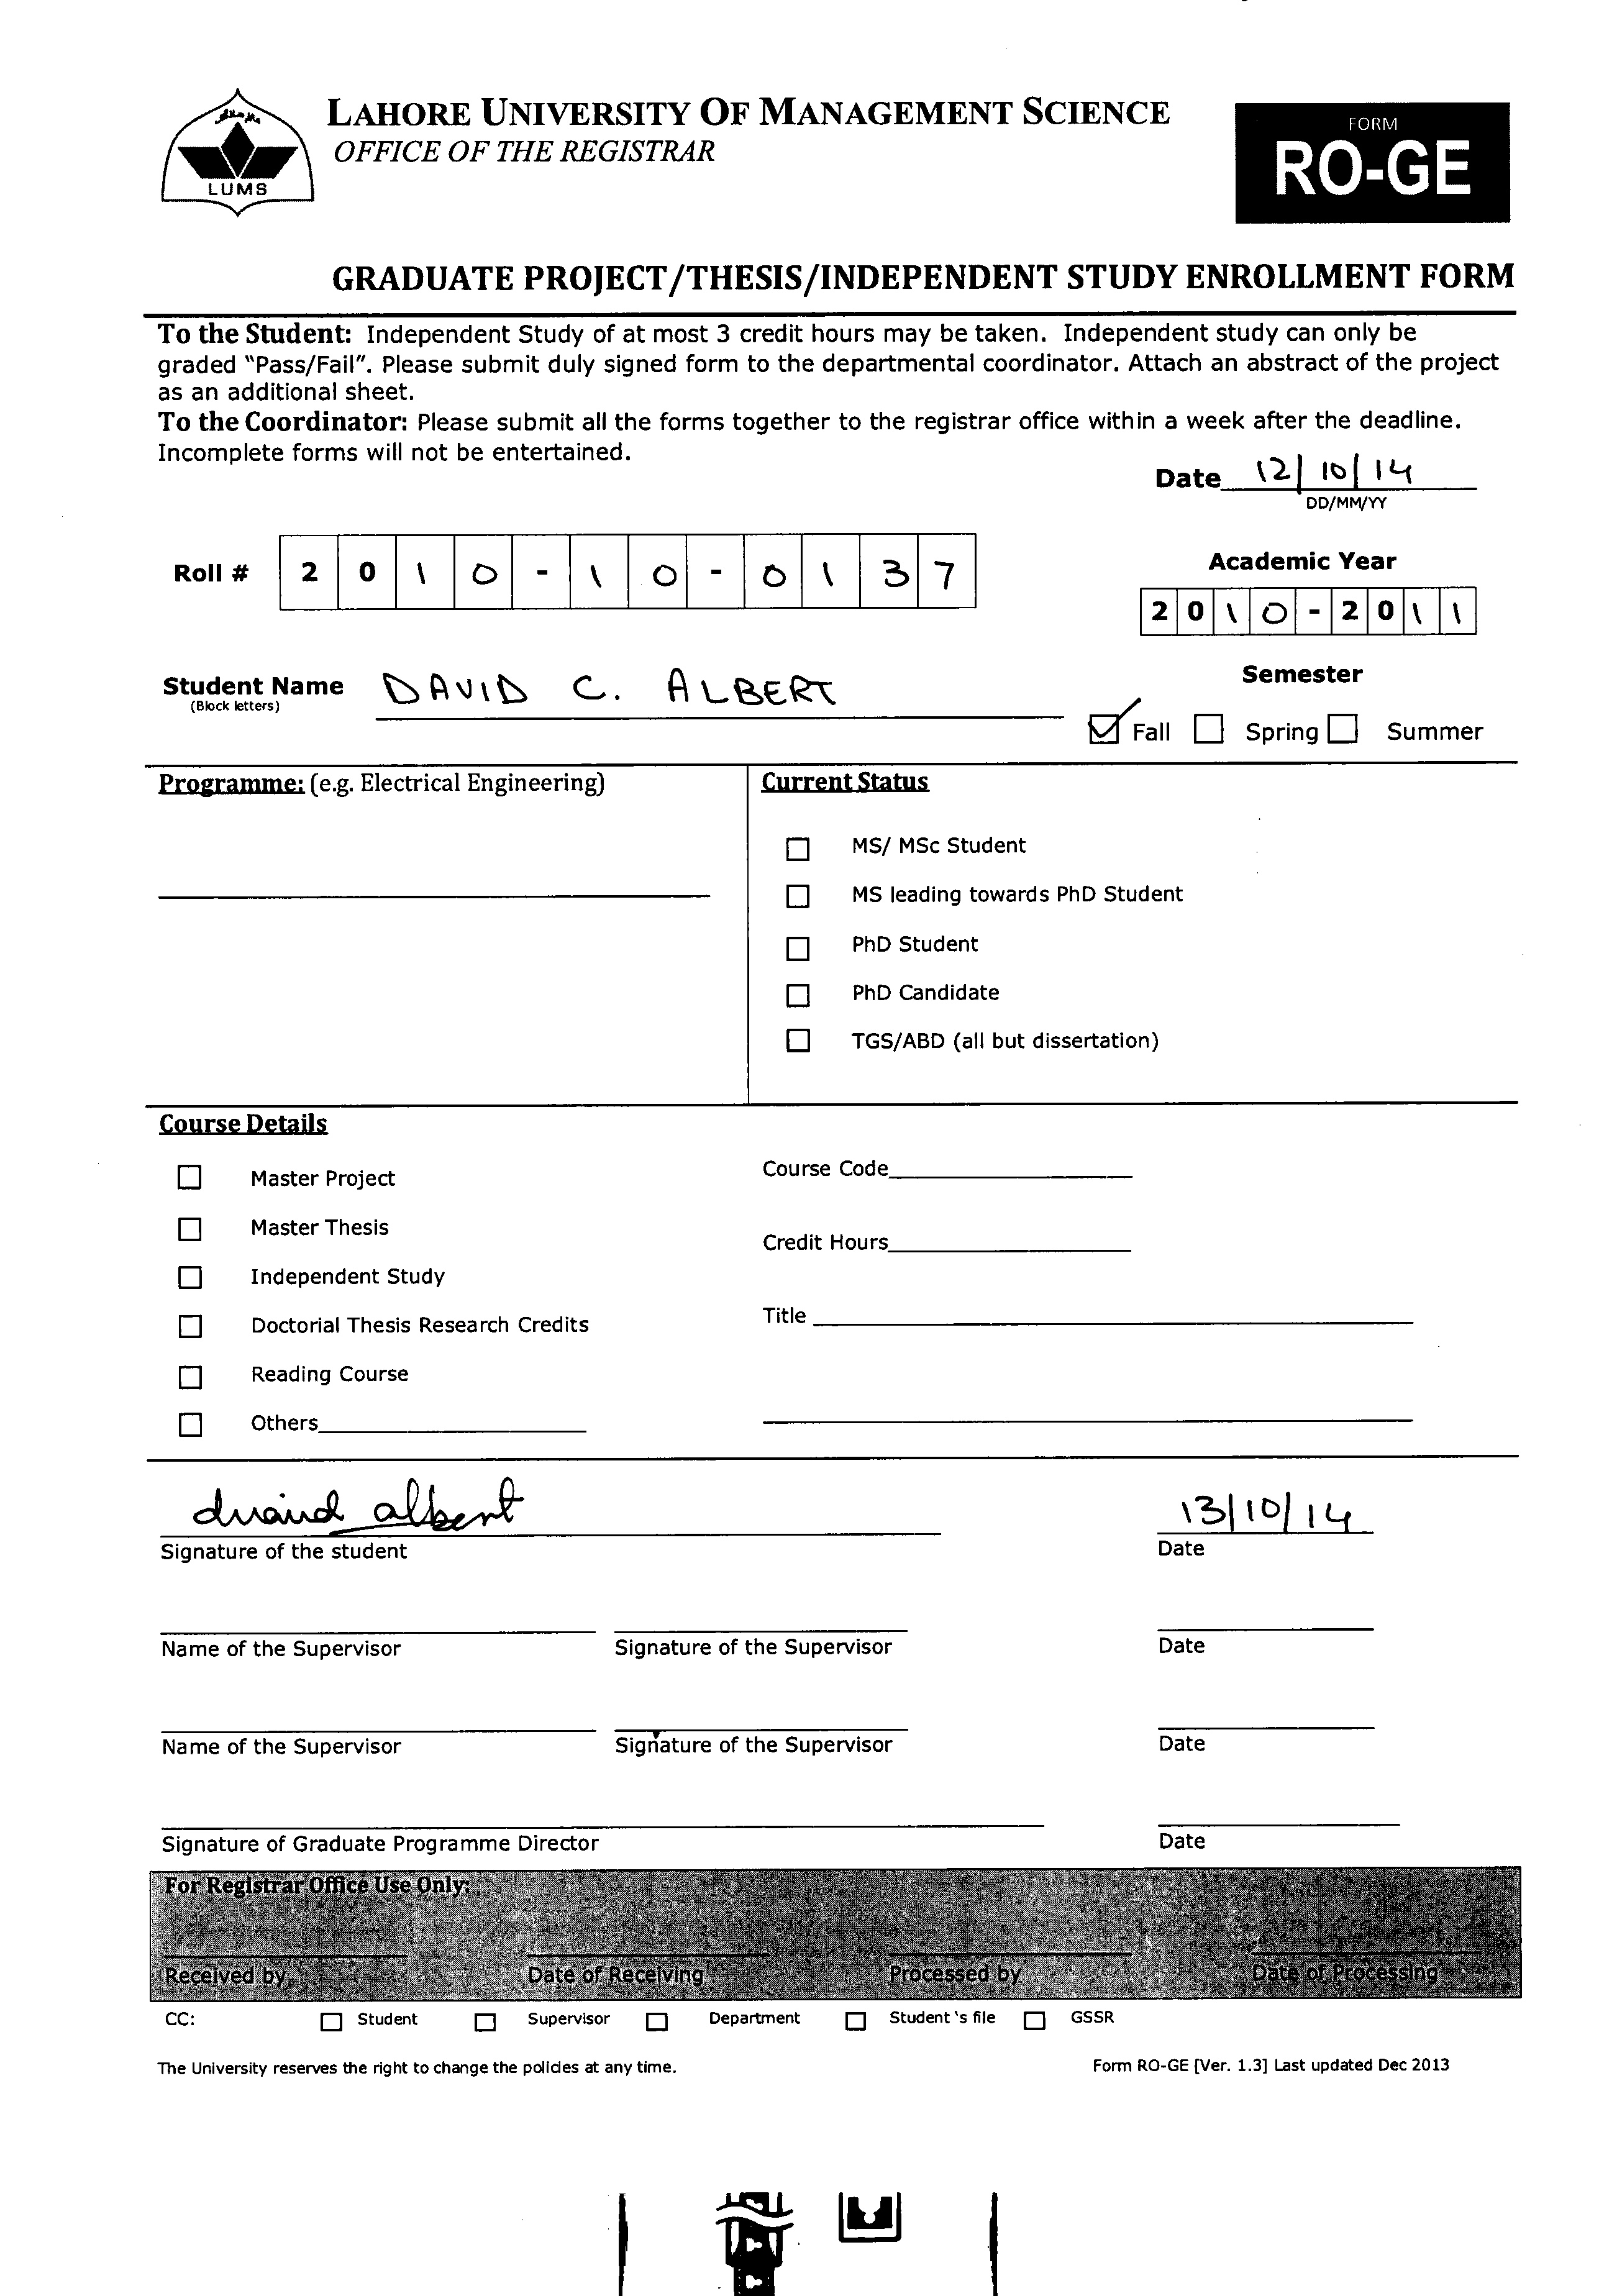 LAHORE UNIVERSITY OF MANAGEMENT SCIENCE
OFFICE OF THE REGISTRAR
LUMS
FORM
RO-GE
GRADUATE PROJECT/THESIS/INDEPENDENT STUDY ENROLLMENT FORM
To the Student: Independent Study of at most 3 credit hours may be taken. Independent study can only be
graded "Pass/Fail". Please submit duly signed form to the departmental coordinator. Attach an abstract of the project
as an additional sheet.
To the Coordinator: Please submit all the forms together to the registrar office within a week after the deadline.
Incomplete forms will not be entertained.
Date 12/10/14
DD/MM/YY
Roll # 2010-10-0137
Academic Year
2010-2011
Student Name DAVID C. ALBERT
(Block letters)
Semester
Fall Spring Summer
Programme: (e.g. Electrical Engineering)
Current Status
MS/ MSc Student
MS leading towards PhD Student
PhD Student
PhD Candidate
TGS/ABD (all but dissertation)
Course Details
Master Project
Master Thesis
Independent Study
Doctorial Thesis Research Credits
Reading Course
Others
Course Code
Credit Hours
Title
albert 13/10/14
Signature of the student Date
Name of the Supervisor Signature of the Supervisor Date
Name of the Supervisor Signature of the Supervisor Date
Signature of Graduate Programme Director Date
For Registrar Office Use Only:
Received by Date of Receiving Processed by Date of Processing
CC: Student Supervisor Department Student's file GSSR
The University reserves the right to change the policies at any time. Form RO-GE [Ver. 1.3] Last updated Dec 2013